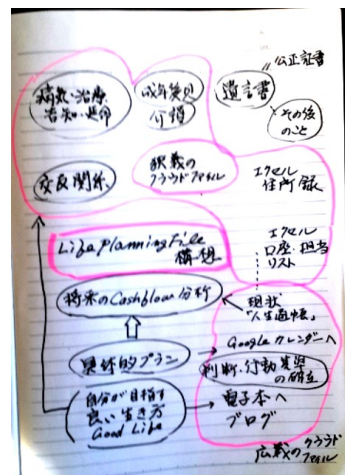 公正証書
病気・治療
告知・延命
成年後見
介護
遺言書
その後
のこと
交友関係
狭義の
クラウドファイル
エクセル
住所録
Life Planning File
構想
エクセル
口座・担当
リスト
将来のCashflow分析
現状
「人生通帳」
具体的プラン
Googleカレンダーへ
判断・行動基準
の確立
自分が目指す
良い生き方
Good Life
電子本へ
ブログ
広義のクラウド
ファイル